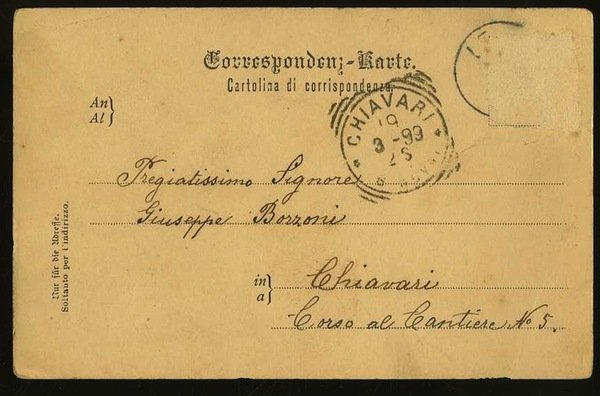 Correspondenz-Karte.
Cartolina di corrispondenza.
An
Al
CHIAVARI
19
3-99
Pregiatissimo Signore
Giuseppe Borzoni
in
a
Chiavari
Corso al Cantiere No 5.
Nur für die Adresse.
Soltanto per l'indirizzo.